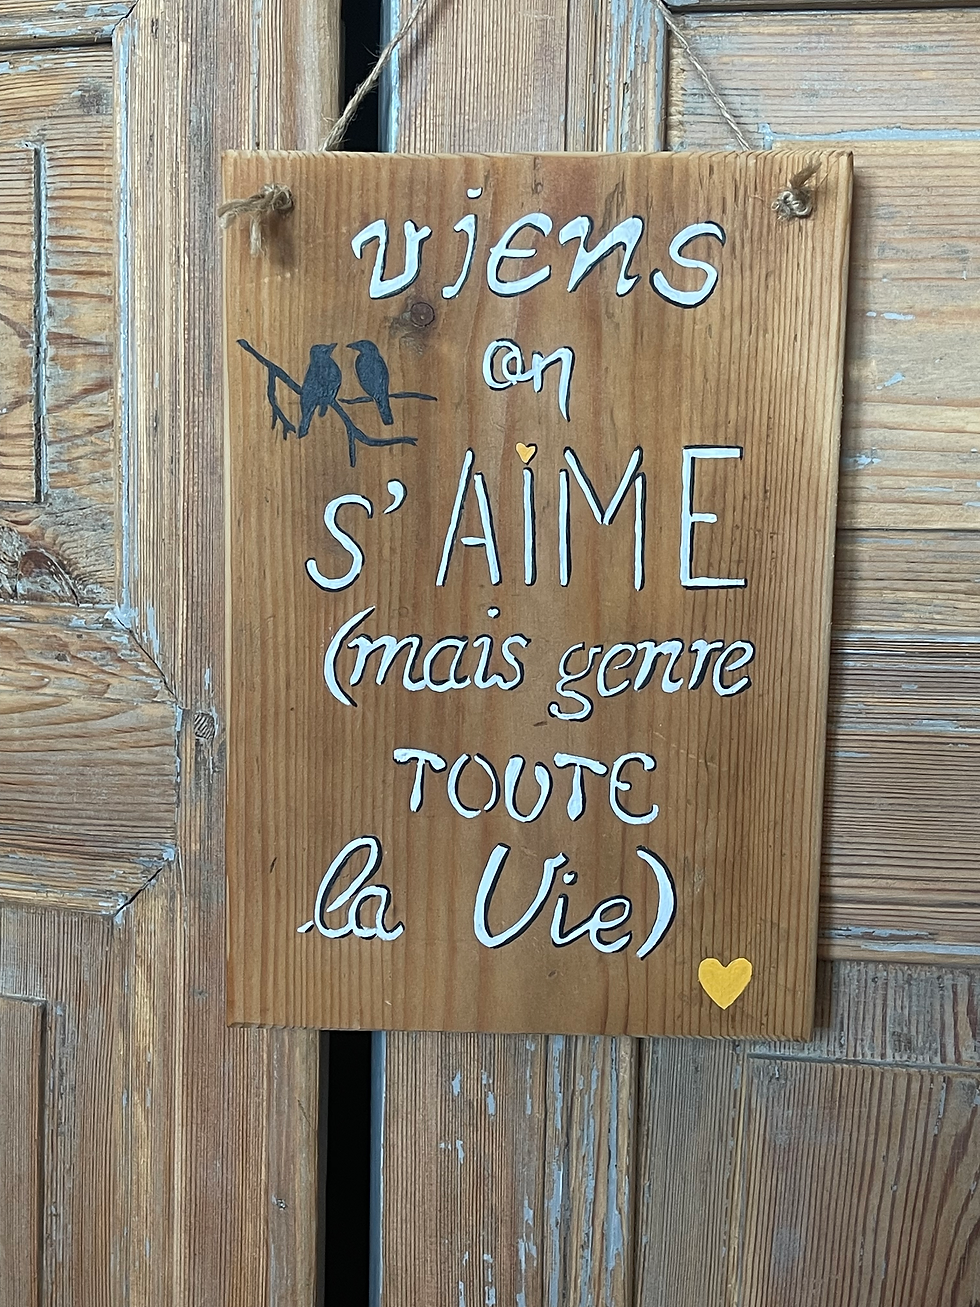 viens
on
s'AiME
(mais genre
TOUTE
la Vie)